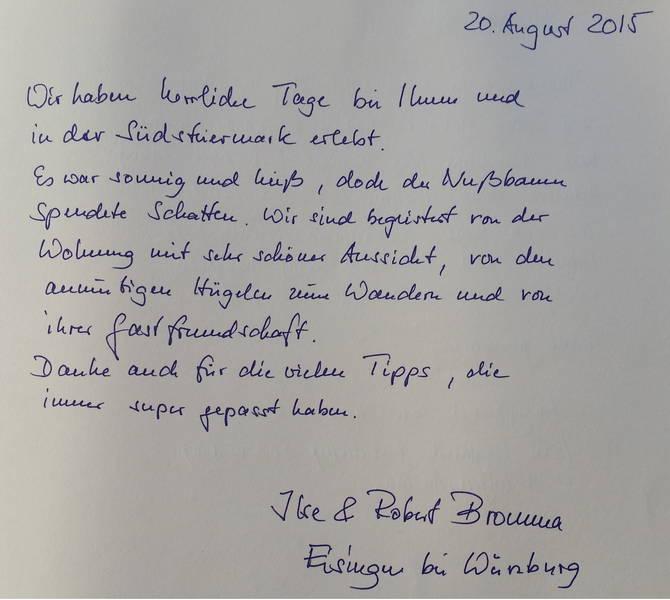 20. August 2015
Wir haben herrliche Tage bei Ihnen und
in der Südsteiermark erlebt.
Es war sonnig und heiß, doch der Nußbaum
spendete Schatten. Wir sind begeistert von der
Wohnung mit sehr schöner Aussicht, von den
anmutigen Hügeln zum Wandern und von
ihrer Gastfreundschaft.
Danke auch für die vielen Tipps, die
immer super gepasst haben.
Ilse & Robert Bromma
Eisingen bei Würzburg